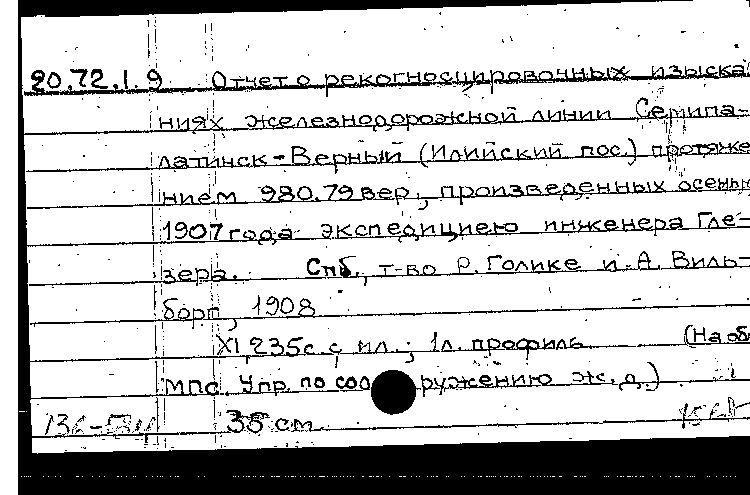 20.72.1.9 Отчет о рекогносцировочных изыска
ниях железнодорожной линии Семипа-
латинск-Верный (Илийский пос.) протяже
нием 980.79 вер., произведенных осенью
1907 года экспедициею инженера Гле-
зера. Спб., т-во Р. Голике и А. Виль-
борг, 1908
XI, 235с. с ил.; 1л. профиль. (На об
МПС. Упр. по сооружению ж.д.)
35 см.